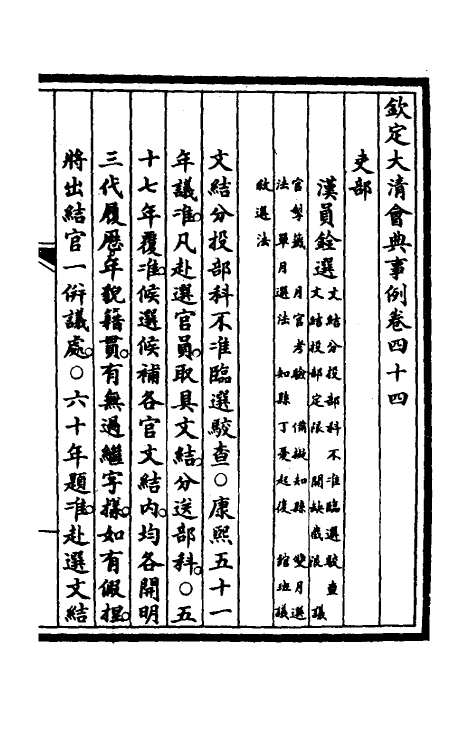 欽定大清會典事例卷四十四
吏部
漢員銓選
文結分投部科不准臨選駮查
文結投部定限 開缺截限 議
官掣籤 月官考驗 備擬知縣 雙月選
法 單月選法 知縣丁憂起復 館班議
敘選法
文結分投部科不准臨選駮查○康熙五十一
年議准。凡赴選官員。取具文結。分送部科。○五
十七年覆准。候選候補各官文結內。均各開明
三代履歷年貌籍貫。有無過繼字樣。如有假捏。
將出結官一併議處。○六十年題准。赴選文結